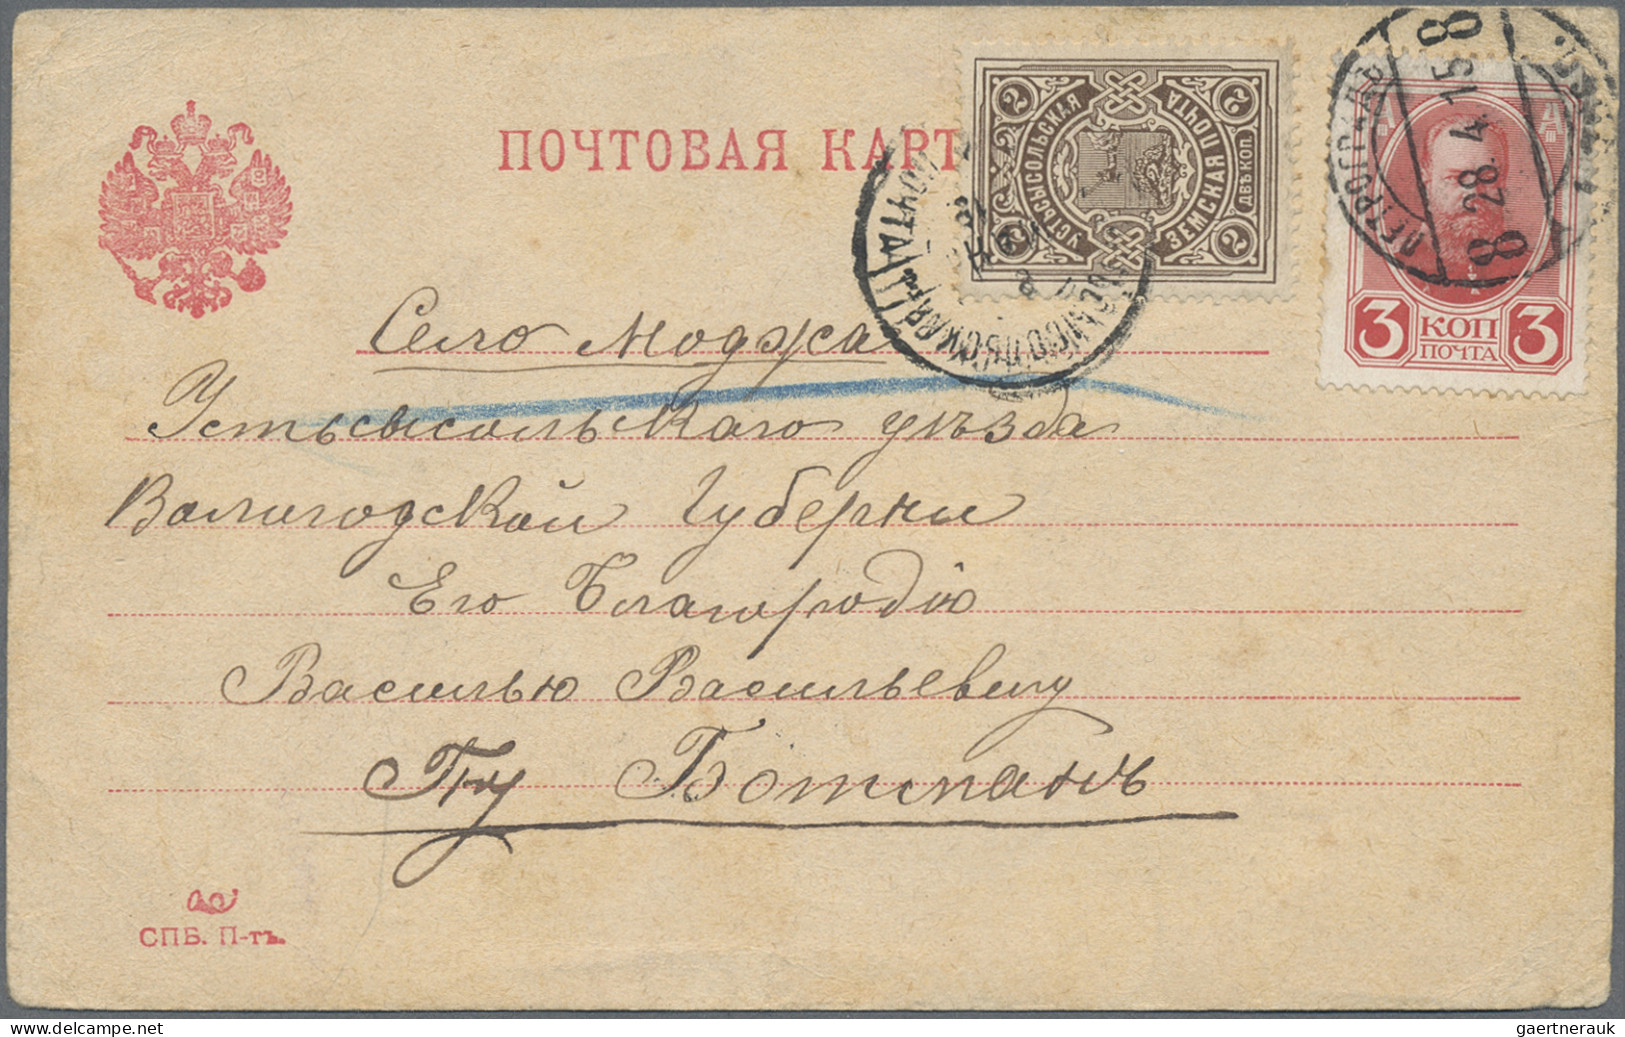 ПОЧТОВАЯ КАРТ
2 2 2 2
УСТЬСЫСОЛЬСКАЯ
ЗЕМСКАЯ ПОЧТА
ДВѢ КОП.
ПЕТРОГРАДЪ
8 28.4.15 8
3 КОП 3
ПОЧТА
ПОЧТА
Село Моджа
Устьсысольскаго уѣзда
Вологодской Губерни
Его Благородію
Василью Васильевичу
Гну Ботманъ
СПБ. П-тъ.
gaertnerauk
delcampe.net